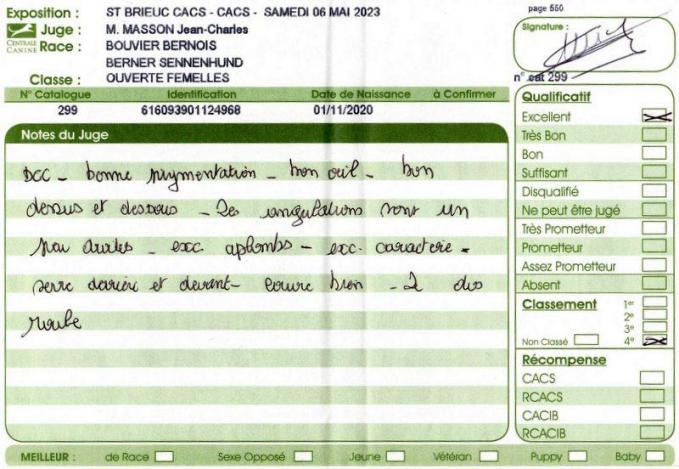 Exposition : ST BRIEUC CACS - CACS - SAMEDI 06 MAI 2023
page 550
CENTRALE CANINE
Juge : M. MASSON Jean-Charles
Signature :
Race : BOUVIER BERNOIS
BERNER SENNENHUND
Classe : OUVERTE FEMELLES
n° cat 299
N° Catalogue Identification Date de Naissance à Confirmer
299 616093901124968 01/11/2020
Notes du Juge
DCC - bonne pigmentation - bon oeil - bon
dessus et dessous - Les angulations sont un
peu droites - exc aplombs - exc. caractere -
serre derriere et devant - couvre bien - le dos
roule
Qualificatif
Excellent
Très Bon
Bon
Suffisant
Disqualifié
Ne peut être jugé
Très Prometteur
Prometteur
Assez Prometteur
Absent
Classement 1er
2e
3e
Non Classé 4e
Récompense
CACS
RCACS
CACIB
RCACIB
MEILLEUR : de Race Sexe Opposé Jeune Vétéran Puppy Baby